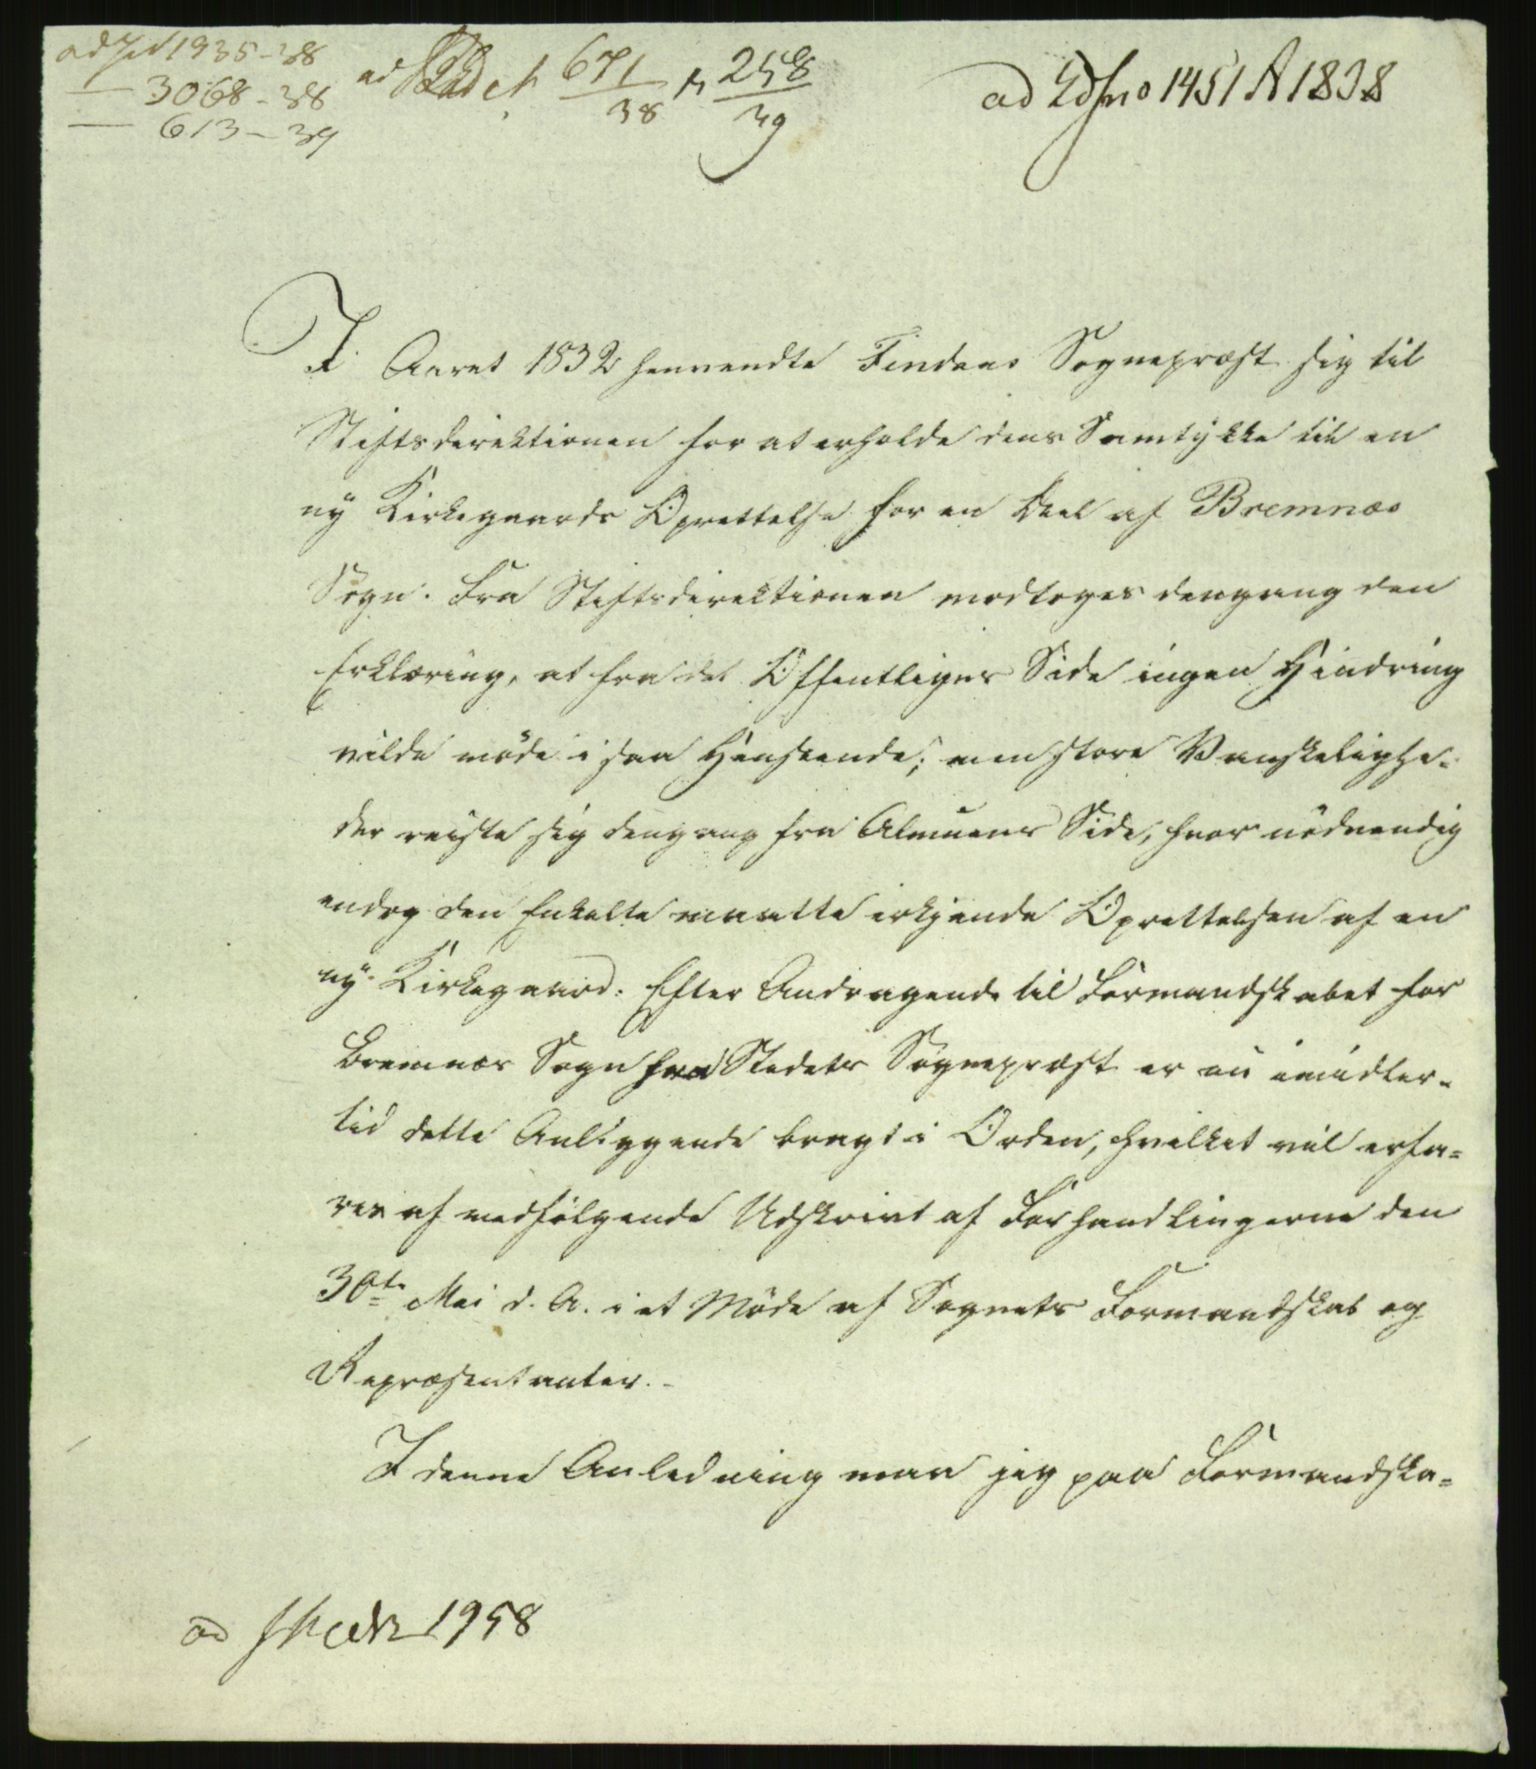 ad 1935-38
— 3068-38
— 613-39
ad 671/38 258/39
ad 1451 A 1838
I Aaret 1832 henvendte Findaas Sognepræst sig til
Stiftsdirektionen for at erholde dens Samtykke til en
ny Kirkegaards Oprettelse for en Deel af Bremnæs
Sogn. Fra Stiftsdirektionen modtoges dengang den
Erklæring, at fra det Offentliges Side ingen Hindring
vilde møde i saa Henseende; men store Vanskelighe-
der reiste sig dengang fra Almuens Side, hvor nødvendig
endog den Enkelte maatte erkjende Oprettelsen af en
ny Kirkegaard. Efter Andragende til Formandskabet for
Bremnæs Sogn fra Stedets Sognepræst er nu imidler-
tid dette Anliggende bragt i Orden, hvilket vil erfa-
res af medfølgende Udskrivt af Forhandlingerne den
30te Mai d. A. i et Møde af Sognets Formandskab og
Repræsentanter.-
I denne Anledning maa jeg paa Formandska-
ad 1958